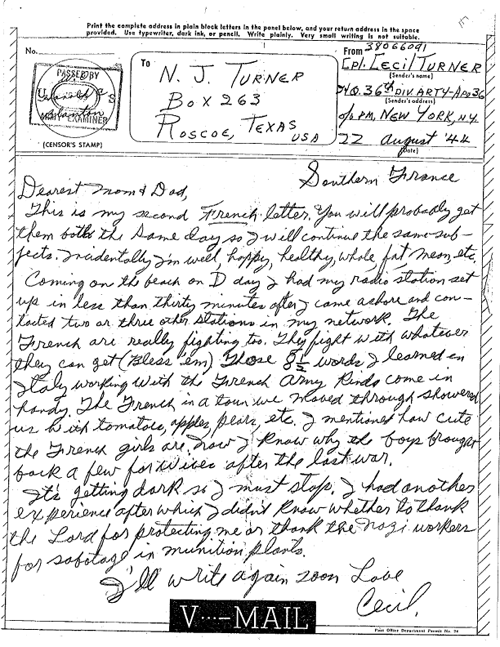 Print the complete address in plain block letters in the panel below, and your return address in the space
provided. Use typewriter, dark ink, or pencil. Write plainly. Very small writing is not suitable.
No.
PASSED BY
EXAMINER
(CENSOR'S STAMP)
To
N. J. TURNER
BOX 263
ROSCOE, TEXAS
USA
From 38066091
Cpl. CECIL TURNER
(Sender's name)
HQ. 36th DIV. ARTY-APO 36
(Sender's address)
c/o PM, NEW YORK, N.Y.
22 August '44
(Date)
Southern France
Dearest Mom & Dad,
This is my second French letter. You will probably get
them both the same day so I will continue the same sub-
jects. Incidentally I'm well, happy, healthy, whole, fat, mean, etc.
Coming on the beach on D day I had my radio station set
up in less than thirty minutes after I came ashore and con-
tacted two or three other stations in my network. The
French are really fighting too. They fight with whatever
they can get (Bless 'em) Those 8½ words I learned in
Italy working with the French Army kinda come in
handy. The French in a town we moved through showered
us with tomatoes, apples, pears, etc. I mentioned how cute
the French girls are. Now I know why the boys brought
back a few for wives after the last war.
It's getting dark so I must stop. I had another
experience after which I didn't know whether to thank
the Lord for protecting me or thank the Nazi workers
for sabotage in munition plants.
I'll write again soon Love
Cecil.
V···—MAIL
Post Office Department Permit No.